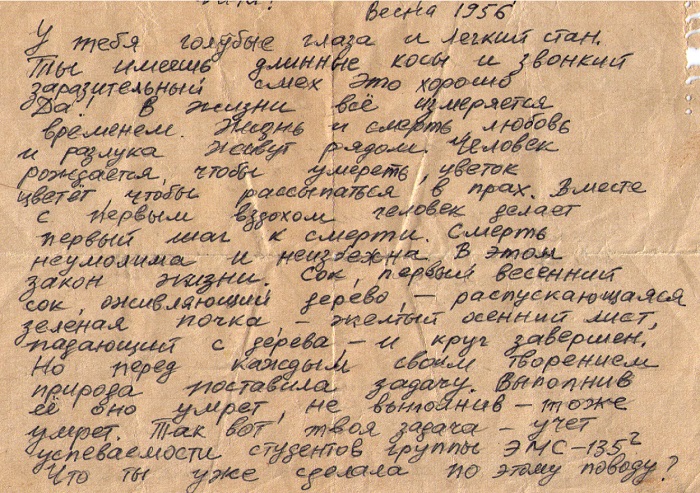 Весна 1956
У тебя голубые глаза и легкий стан.
Ты имеешь длинные косы и звонкий
заразительный смех это хорошо
Да! В жизни всё измеряется
временем. Жизнь и смерть любовь
и разлука живут рядом. Человек
рождается, чтобы умереть, цветок
цветёт чтобы рассыпаться в прах. Вместе
с первым вздохом человек делает
первый шаг к смерти. Смерть
неумолима и неизбежна. В этом
закон жизни. Сок, первый весенний
сок, оживляющий дерево, – распускающаяся
зеленая почка – желтый осенний лист,
падающий с дерева – и круг завершен.
Но перед каждым своим творением
природа поставила задачу. Выполнив
её оно умрет, не выполнив – тоже
умрет. Так вот, твоя задача – учет
успеваемости студентов группы ЭМС-135²
Что ты уже сделала по этому поводу?